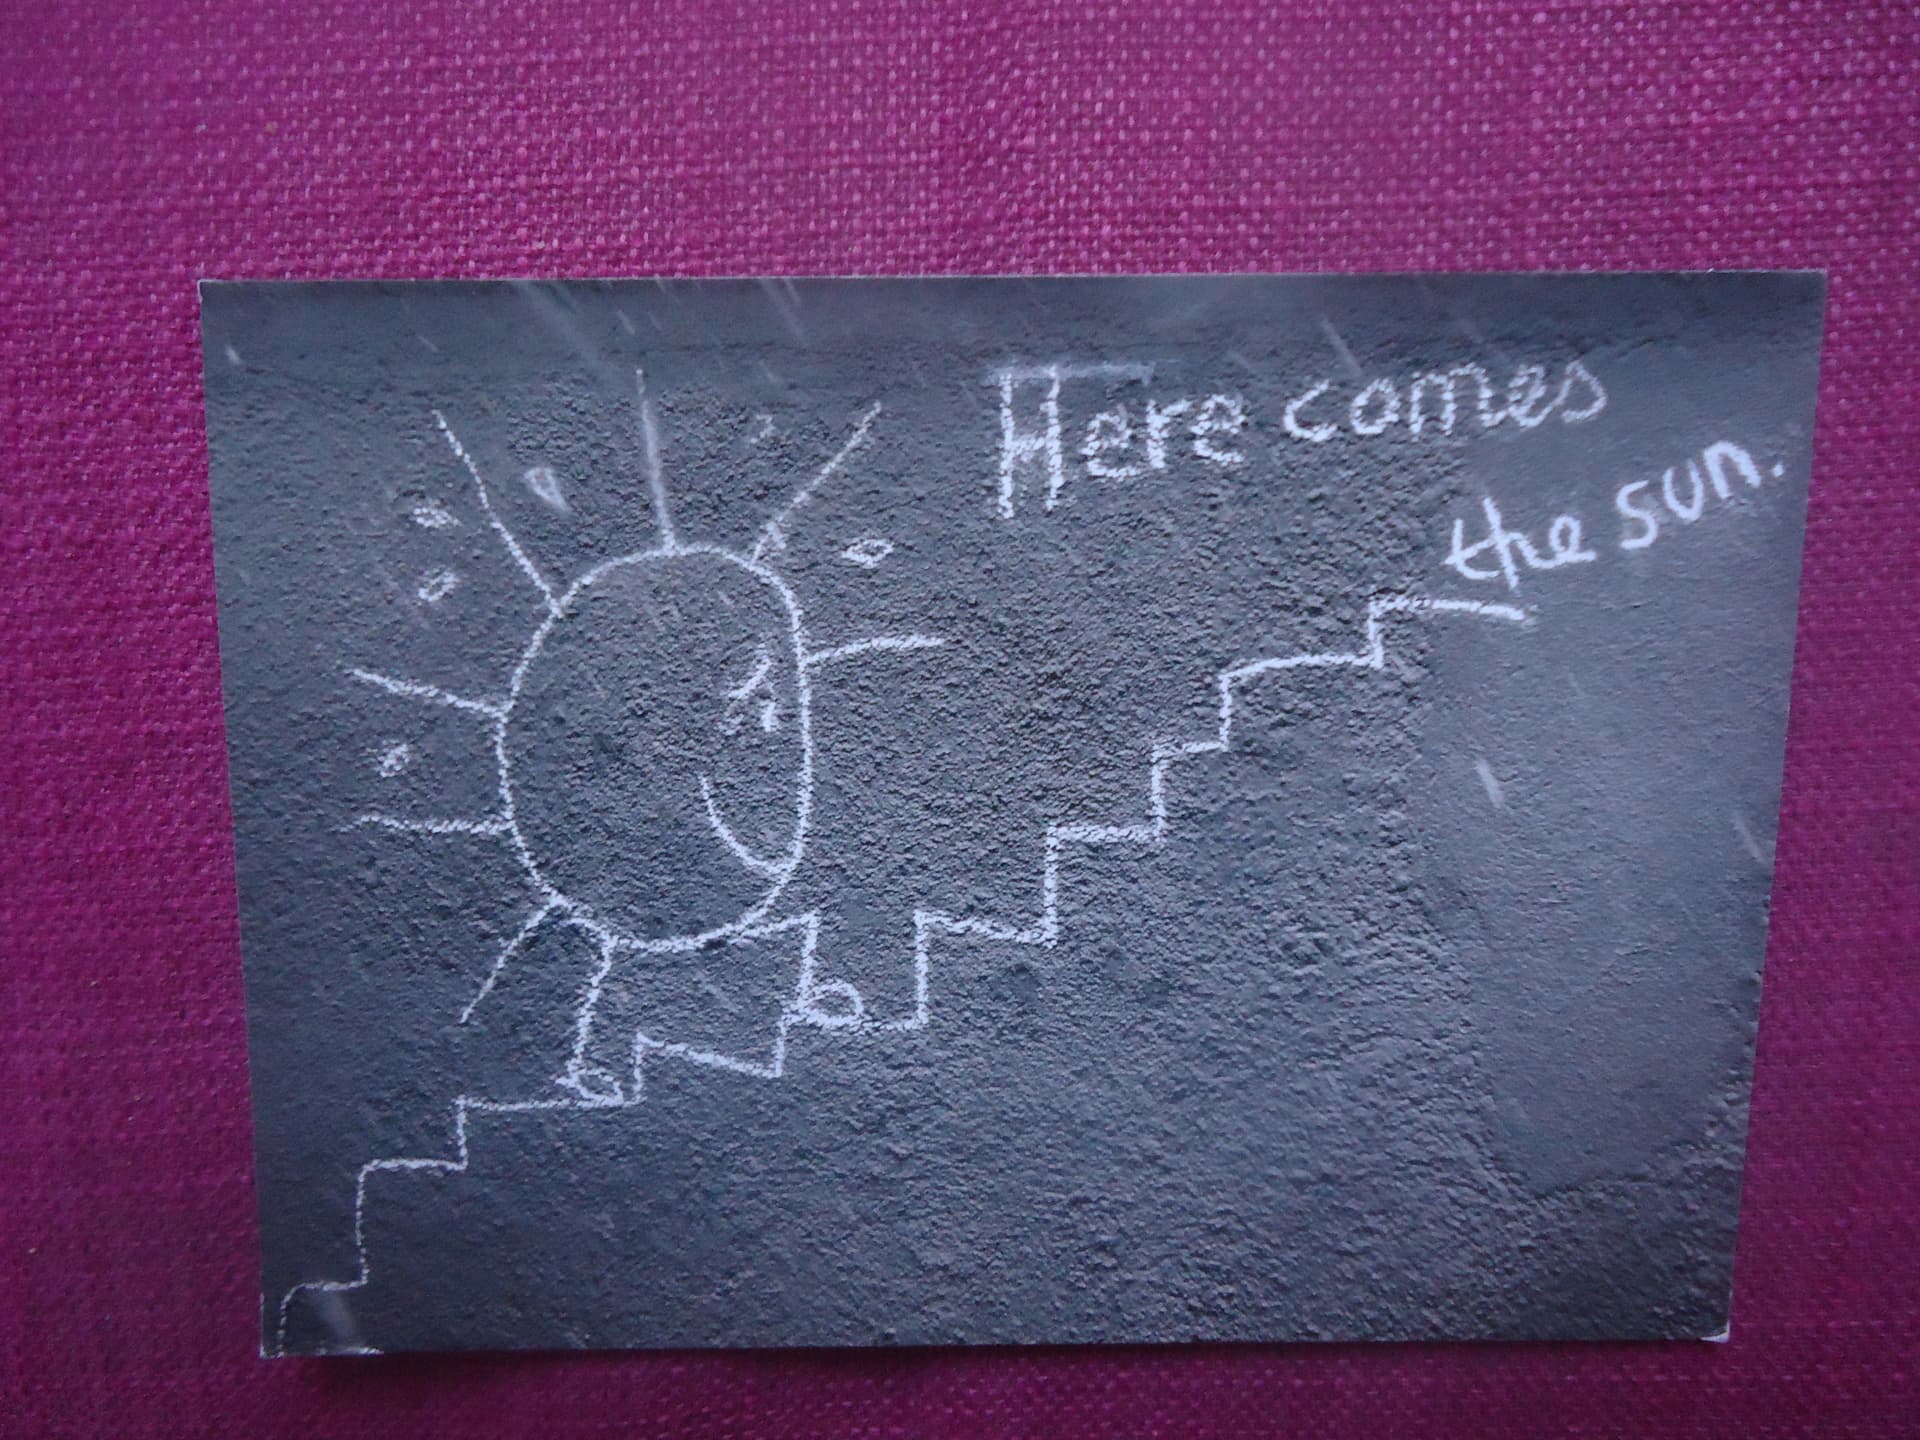 Here comes
the sun.